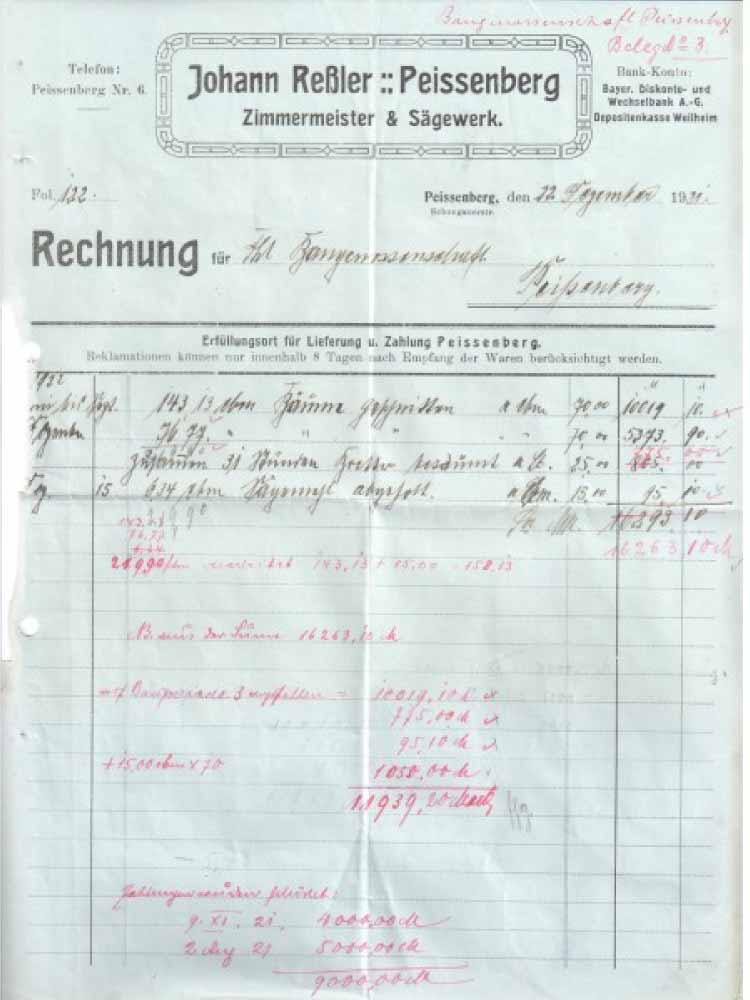 Baugenossenschaft Peissenberg
Beleg No 3.
Telefon:
Peissenberg Nr. 6.
Johann Reßler :: Peissenberg
Zimmermeister & Sägewerk.
Bank-Konto:
Bayer. Diskonto- und
Wechselbank A.-G.
Depositenkasse Weilheim
Fol. 122.
Peissenberg, den 22 Dezember 1921.
Rechnung für Baugenossenschaft
Peißenberg.
Erfüllungsort für Lieferung u. Zahlung Peissenberg.
Reklamationen können nur innenhalb 8 Tagen nach Empfang der Waren berücksichtigt werden.
143 13 cbm Bäume geschnitten a cbm 70 00 10019 10.
76 77. " " " " 70 00 5373. 90.
775. 00
zusammen 31 Stunden Bretter besäumt a St. 25,00 00
15. 634 cbm Sägemehl abgeholt. a cbm. 15,00 95. 10
M. 16293 10
16263 10 M
143,13
76,77
143,13 + 15,00 = 158,13
NB. aus der Summe 16263,10 M
auf Bauperiode 3 entfallen = 10019,10 M
775,00 M
95,10 M
+ 15,00 cbm x 70 1050,00 M
11939,20 Mark
Zahlungen wurden geleistet:
9. XI. 21. 4000,00 M
2 Dez 21 5000,00 M
9000,00 M